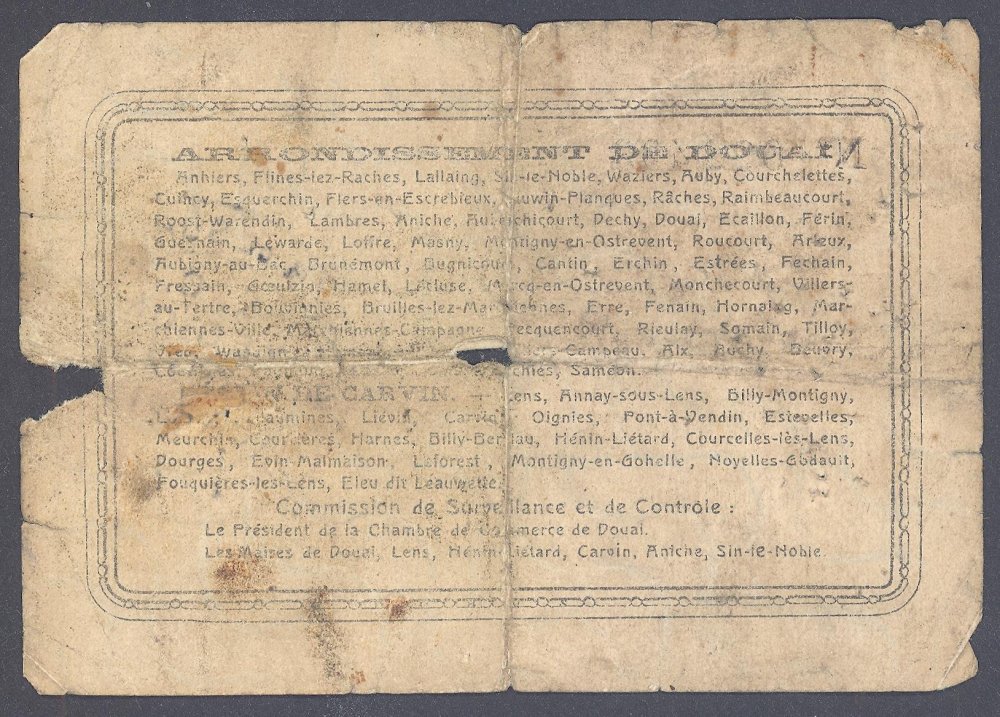 ARRONDISSEMENT DE DOUAI
Anhiers, Flines-lez-Raches, Lallaing, Sin-le-Noble, Waziers, Auby, Courchelettes,
Cuincy, Esquerchin, Flers-en-Escrebieux, Lauwin-Planques, Râches, Raimbeaucourt,
Roost-Warendin, Lambres, Aniche, Auberchicourt, Dechy, Douai, Ecaillon, Férin,
Guesnain, Lewarde, Loffre, Masny, Montigny-en-Ostrevent, Roucourt, Arleux,
Aubigny-au-Bac, Brunémont, Bugnicourt, Cantin, Erchin, Estrées, Fechain,
Fressain, Gœulzin, Hamel, Lécluse, Marcq-en-Ostrevent, Monchecourt, Villers-
au-Tertre, Bouvignies, Bruilles-lez-Marchiennes, Erre, Fenain, Hornaing, Mar-
chiennes-Ville, Marchiennes-Campagne, Pecquencourt, Rieulay, Somain, Tilloy,
Vred, Campeau, Aix, Auchy, Beuvry,
Saméon.
DE CARVIN. — Lens, Annay-sous-Lens, Billy-Montigny,
Liévin, Carvin, Oignies, Pont-à-Vendin, Estevelles,
Meurchin, Courrières, Harnes, Billy-Berclau, Hénin-Liétard, Courcelles-lès-Lens,
Dourges, Evin-Malmaison, Leforest, Montigny-en-Gohelle, Noyelles-Godault,
Fouquières-les-Lens, Eleu dit Leauwette.
Commission de Surveillance et de Contrôle :
Le Président de la Chambre de Commerce de Douai.
Les Maires de Douai, Lens, Hénin-Liétard, Carvin, Aniche, Sin-le-Noble.